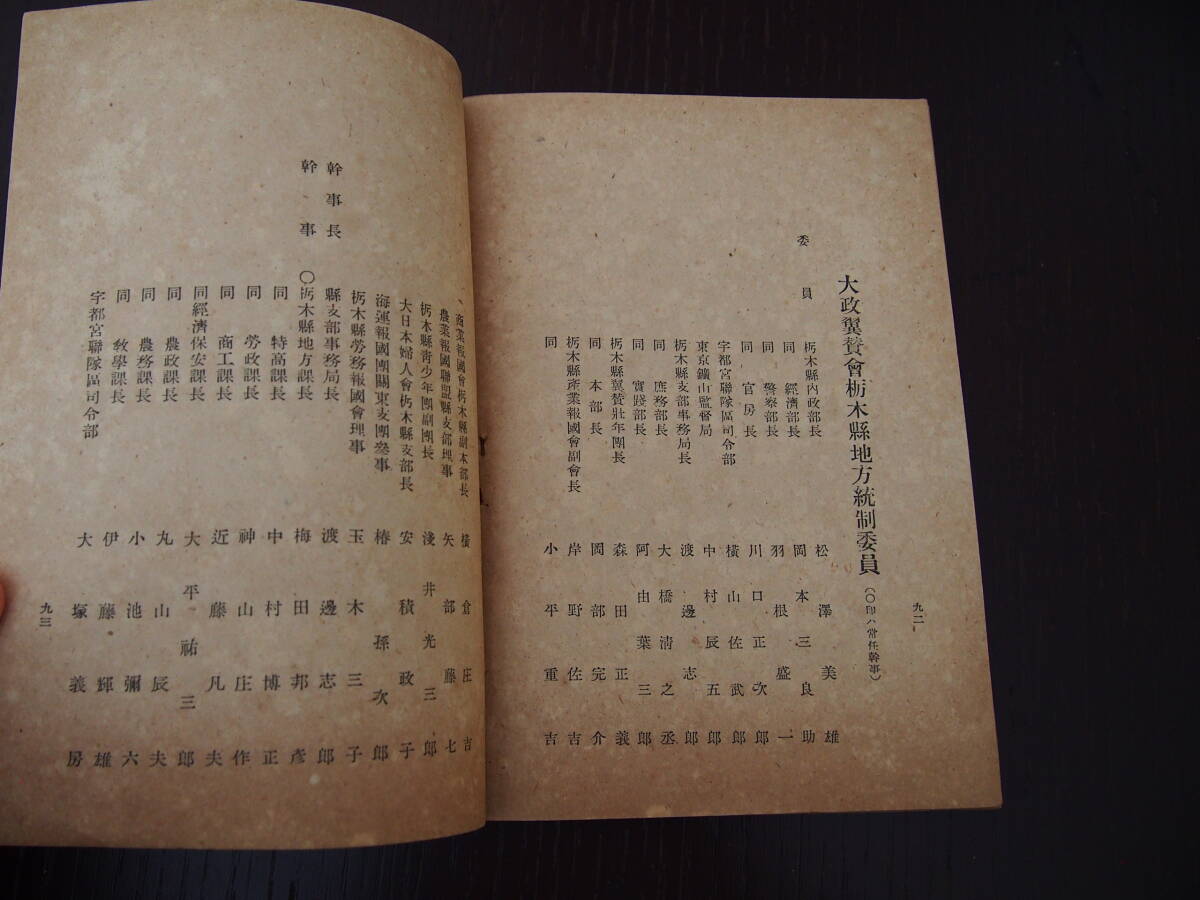 大政翼賛會栃木縣地方統制委員(〇印ハ常任幹事)
委員 栃木縣內政部長 松澤美雄
同 經濟部長 岡本三良助
同 警察部長 羽根盛一
同 官房長 川口正次郎
宇都宮聯隊區司令部 橫山佐武郎
東京鑛山監督局 中村辰五郎
栃木縣支部事務局長 渡邊志郎
同 庶務部長 大橋淸之丞
同 實踐部長 阿由葉三郎
栃木縣翼賛壯年團長 森田正義
同 本部長 岡部完介
栃木縣產業報國會副會長 岸野佐吉
同 小平重吉
九二
商業報國會栃木縣副本部長 橫倉庄吉
農業報國聯盟縣支部理事 矢部藤七
栃木縣靑少年團副團長 淺井光三郎
大日本婦人會栃木縣支部長 安積政子
海運報國團關東支團參事 椿孫次郎
栃木縣勞務報國會理事 玉木三子
幹事長 縣支部事務局長 渡邊志郎
幹事 〇栃木縣地方課長 梅田邦彥
同 特高課長 中村博正
同 勞政課長 神山庄作
同 商工課長 近藤凡夫
同 經濟保安課長 大平祐三郎
同 農政課長 丸山辰夫
同 農務課長 小池彌六
同 敎學課長 伊藤輝雄
宇都宮聯隊區司令部 大塚義房
九三